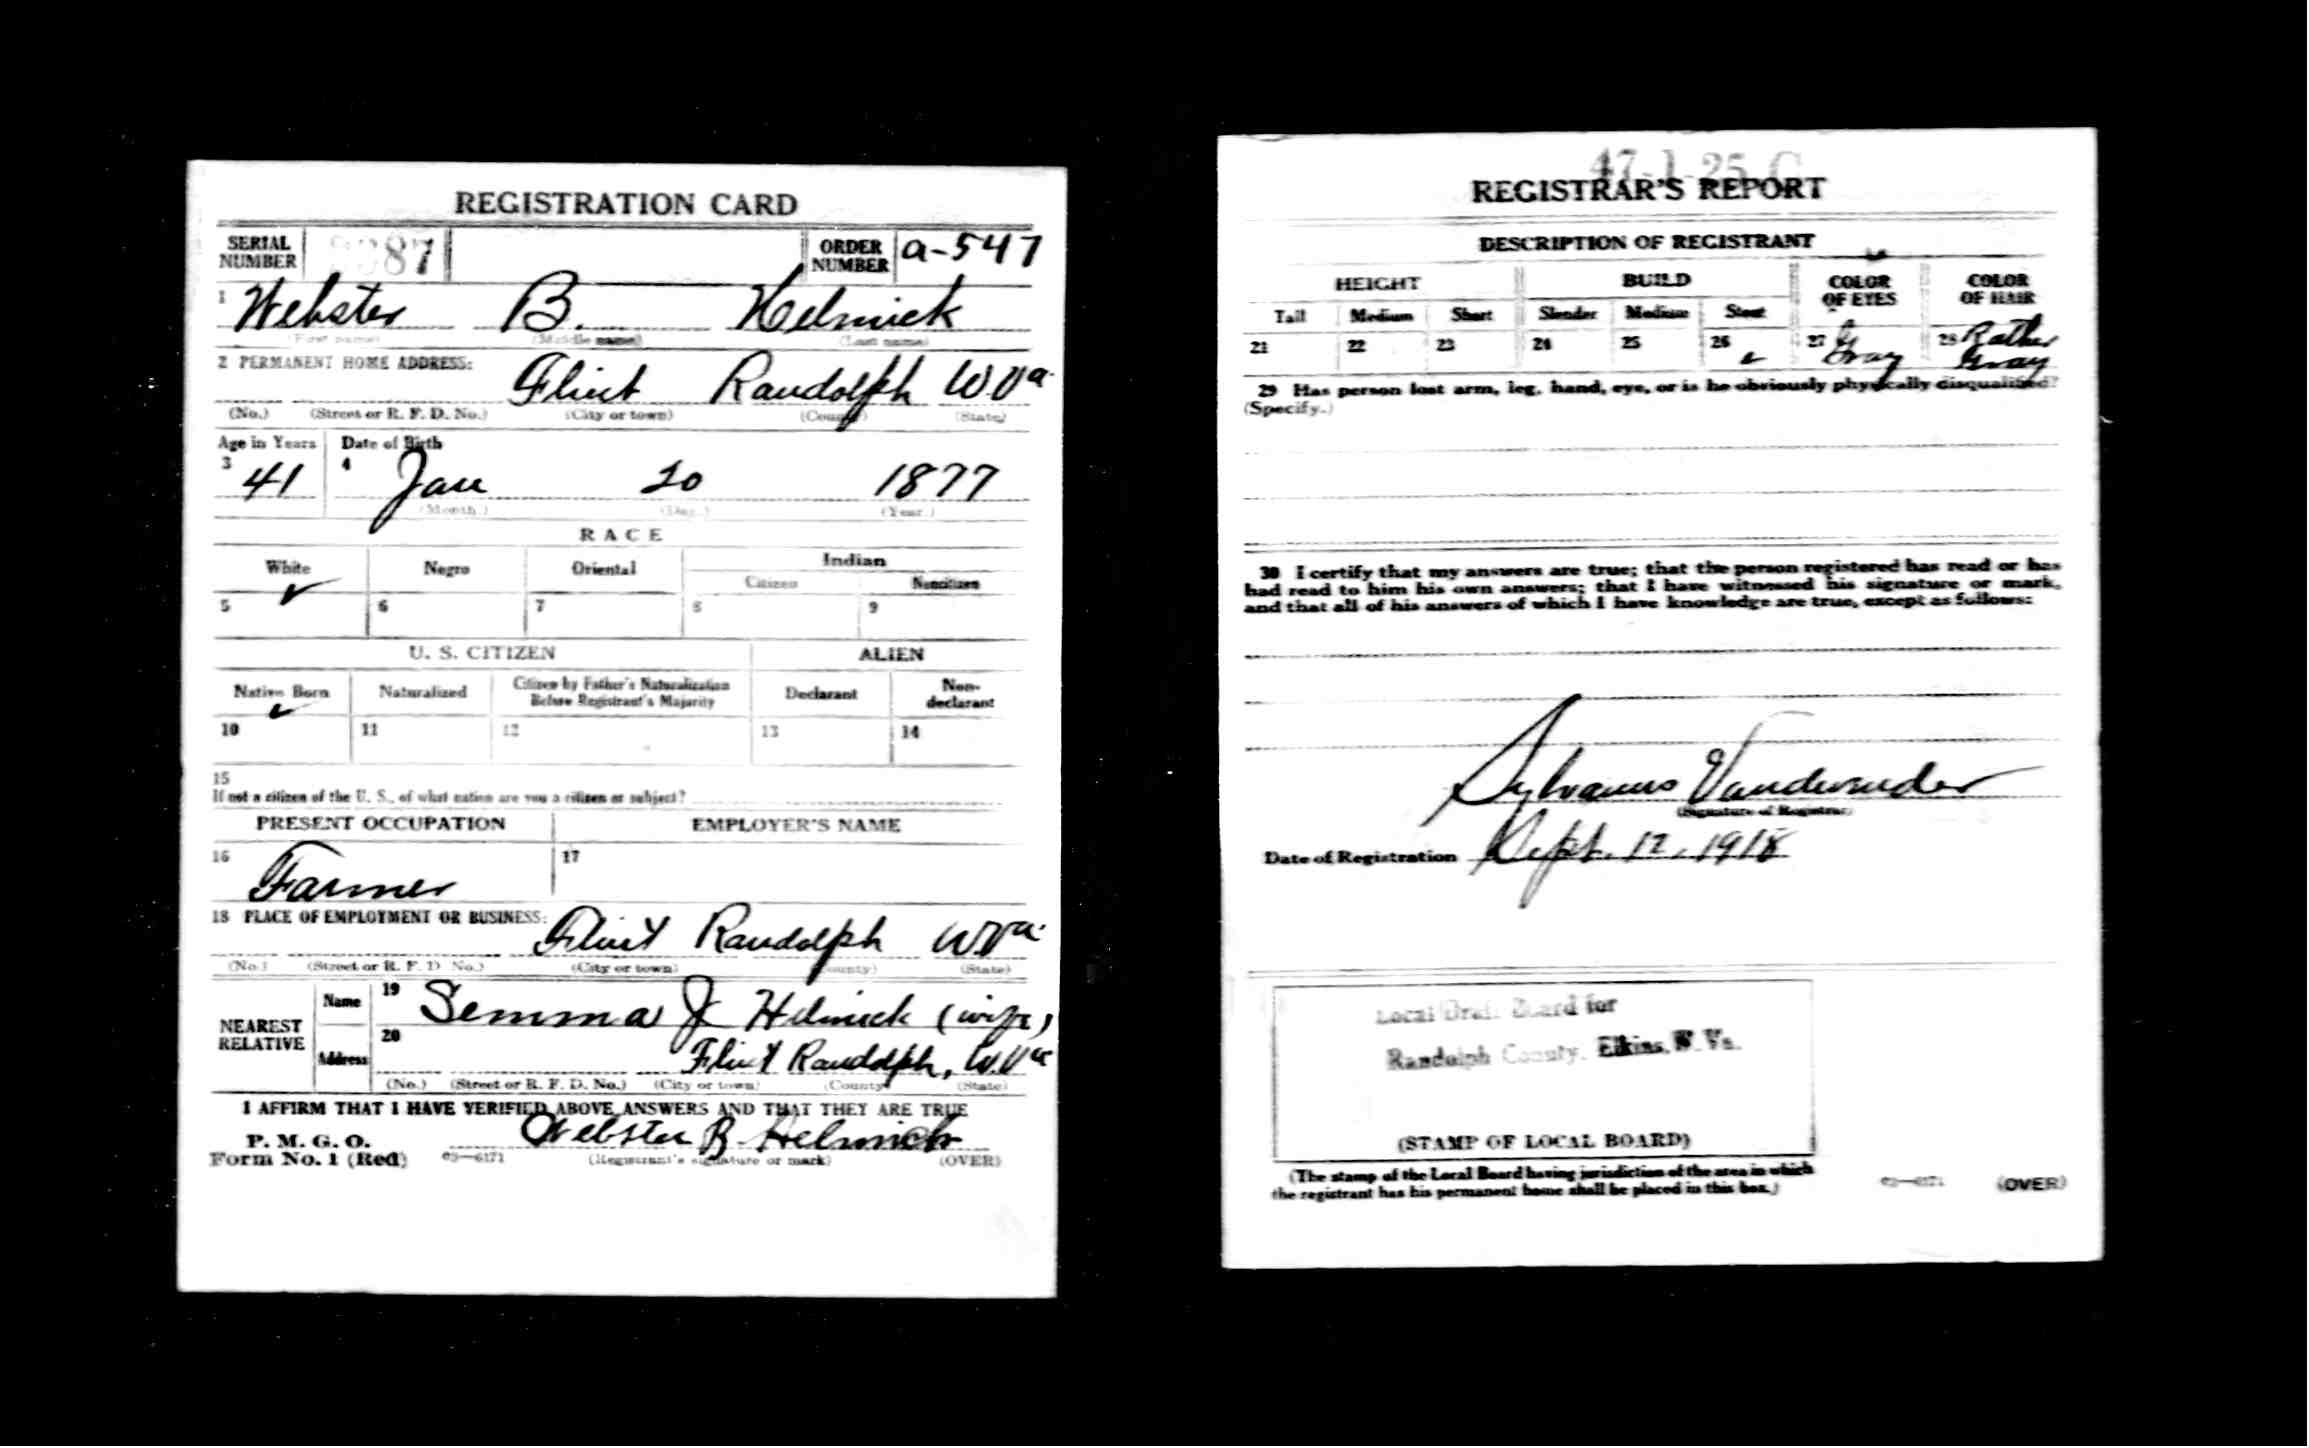 REGISTRATION CARD
SERIAL NUMBER 87 ORDER NUMBER a-547
1 Webster B. Helmick
(First name) (Middle name) (Last name)
2 PERMANENT HOME ADDRESS:
Flint Randolph W Va.
(No.) (Street or R. F. D. No.) (City or town) (County) (State)
Age in Years Date of Birth
3 41 4 Jan 20 1877
(Month.) (Day.) (Year.)
RACE
White Negro Oriental Indian
Citizen Noncitizen
5 ✓ 6 7 8 9
U. S. CITIZEN ALIEN
Native Born Naturalized Citizen by Father's Naturalization Before Registrant's Majority Declarant Non-declarant
10 ✓ 11 12 13 14
15
If not a citizen of the U. S., of what nation are you a citizen or subject?
PRESENT OCCUPATION EMPLOYER'S NAME
16 Farmer 17
18 PLACE OF EMPLOYMENT OR BUSINESS:
Flint Randolph W Va.
(No.) (Street or R. F. D. No.) (City or town) (County) (State)
NEAREST RELATIVE
Name 19 Semma J Helmick (wife)
Address 20 Flint Randolph, W. Va
(No.) (Street or R. F. D. No.) (City or town) (County) (State)
I AFFIRM THAT I HAVE VERIFIED ABOVE ANSWERS AND THAT THEY ARE TRUE
P. M. G. O.
Form No. 1 (Red) 03—6171 Webster B Helmick
(Registrant's signature or mark) (OVER)
47-1-25 C
REGISTRAR'S REPORT
DESCRIPTION OF REGISTRANT
HEIGHT BUILD COLOR OF EYES COLOR OF HAIR
Tall Medium Short Slender Medium Stout
21 22 23 24 25 26 ✓ 27 Gray 28 Rather Gray
29 Has person lost arm, leg, hand, eye, or is he obviously physically disqualified?
(Specify.)
30 I certify that my answers are true; that the person registered has read or has
had read to him his own answers; that I have witnessed his signature or mark,
and that all of his answers of which I have knowledge are true, except as follows:
Sylvanus Vandevender
(Signature of Registrar)
Date of Registration Sept. 12, 1918
Local Draft Board for
Randolph County, Elkins, W. Va.
(STAMP OF LOCAL BOARD)
(The stamp of the Local Board having jurisdiction of the area in which
the registrant has his permanent home shall be placed in this box.)
03—6171 (OVER)